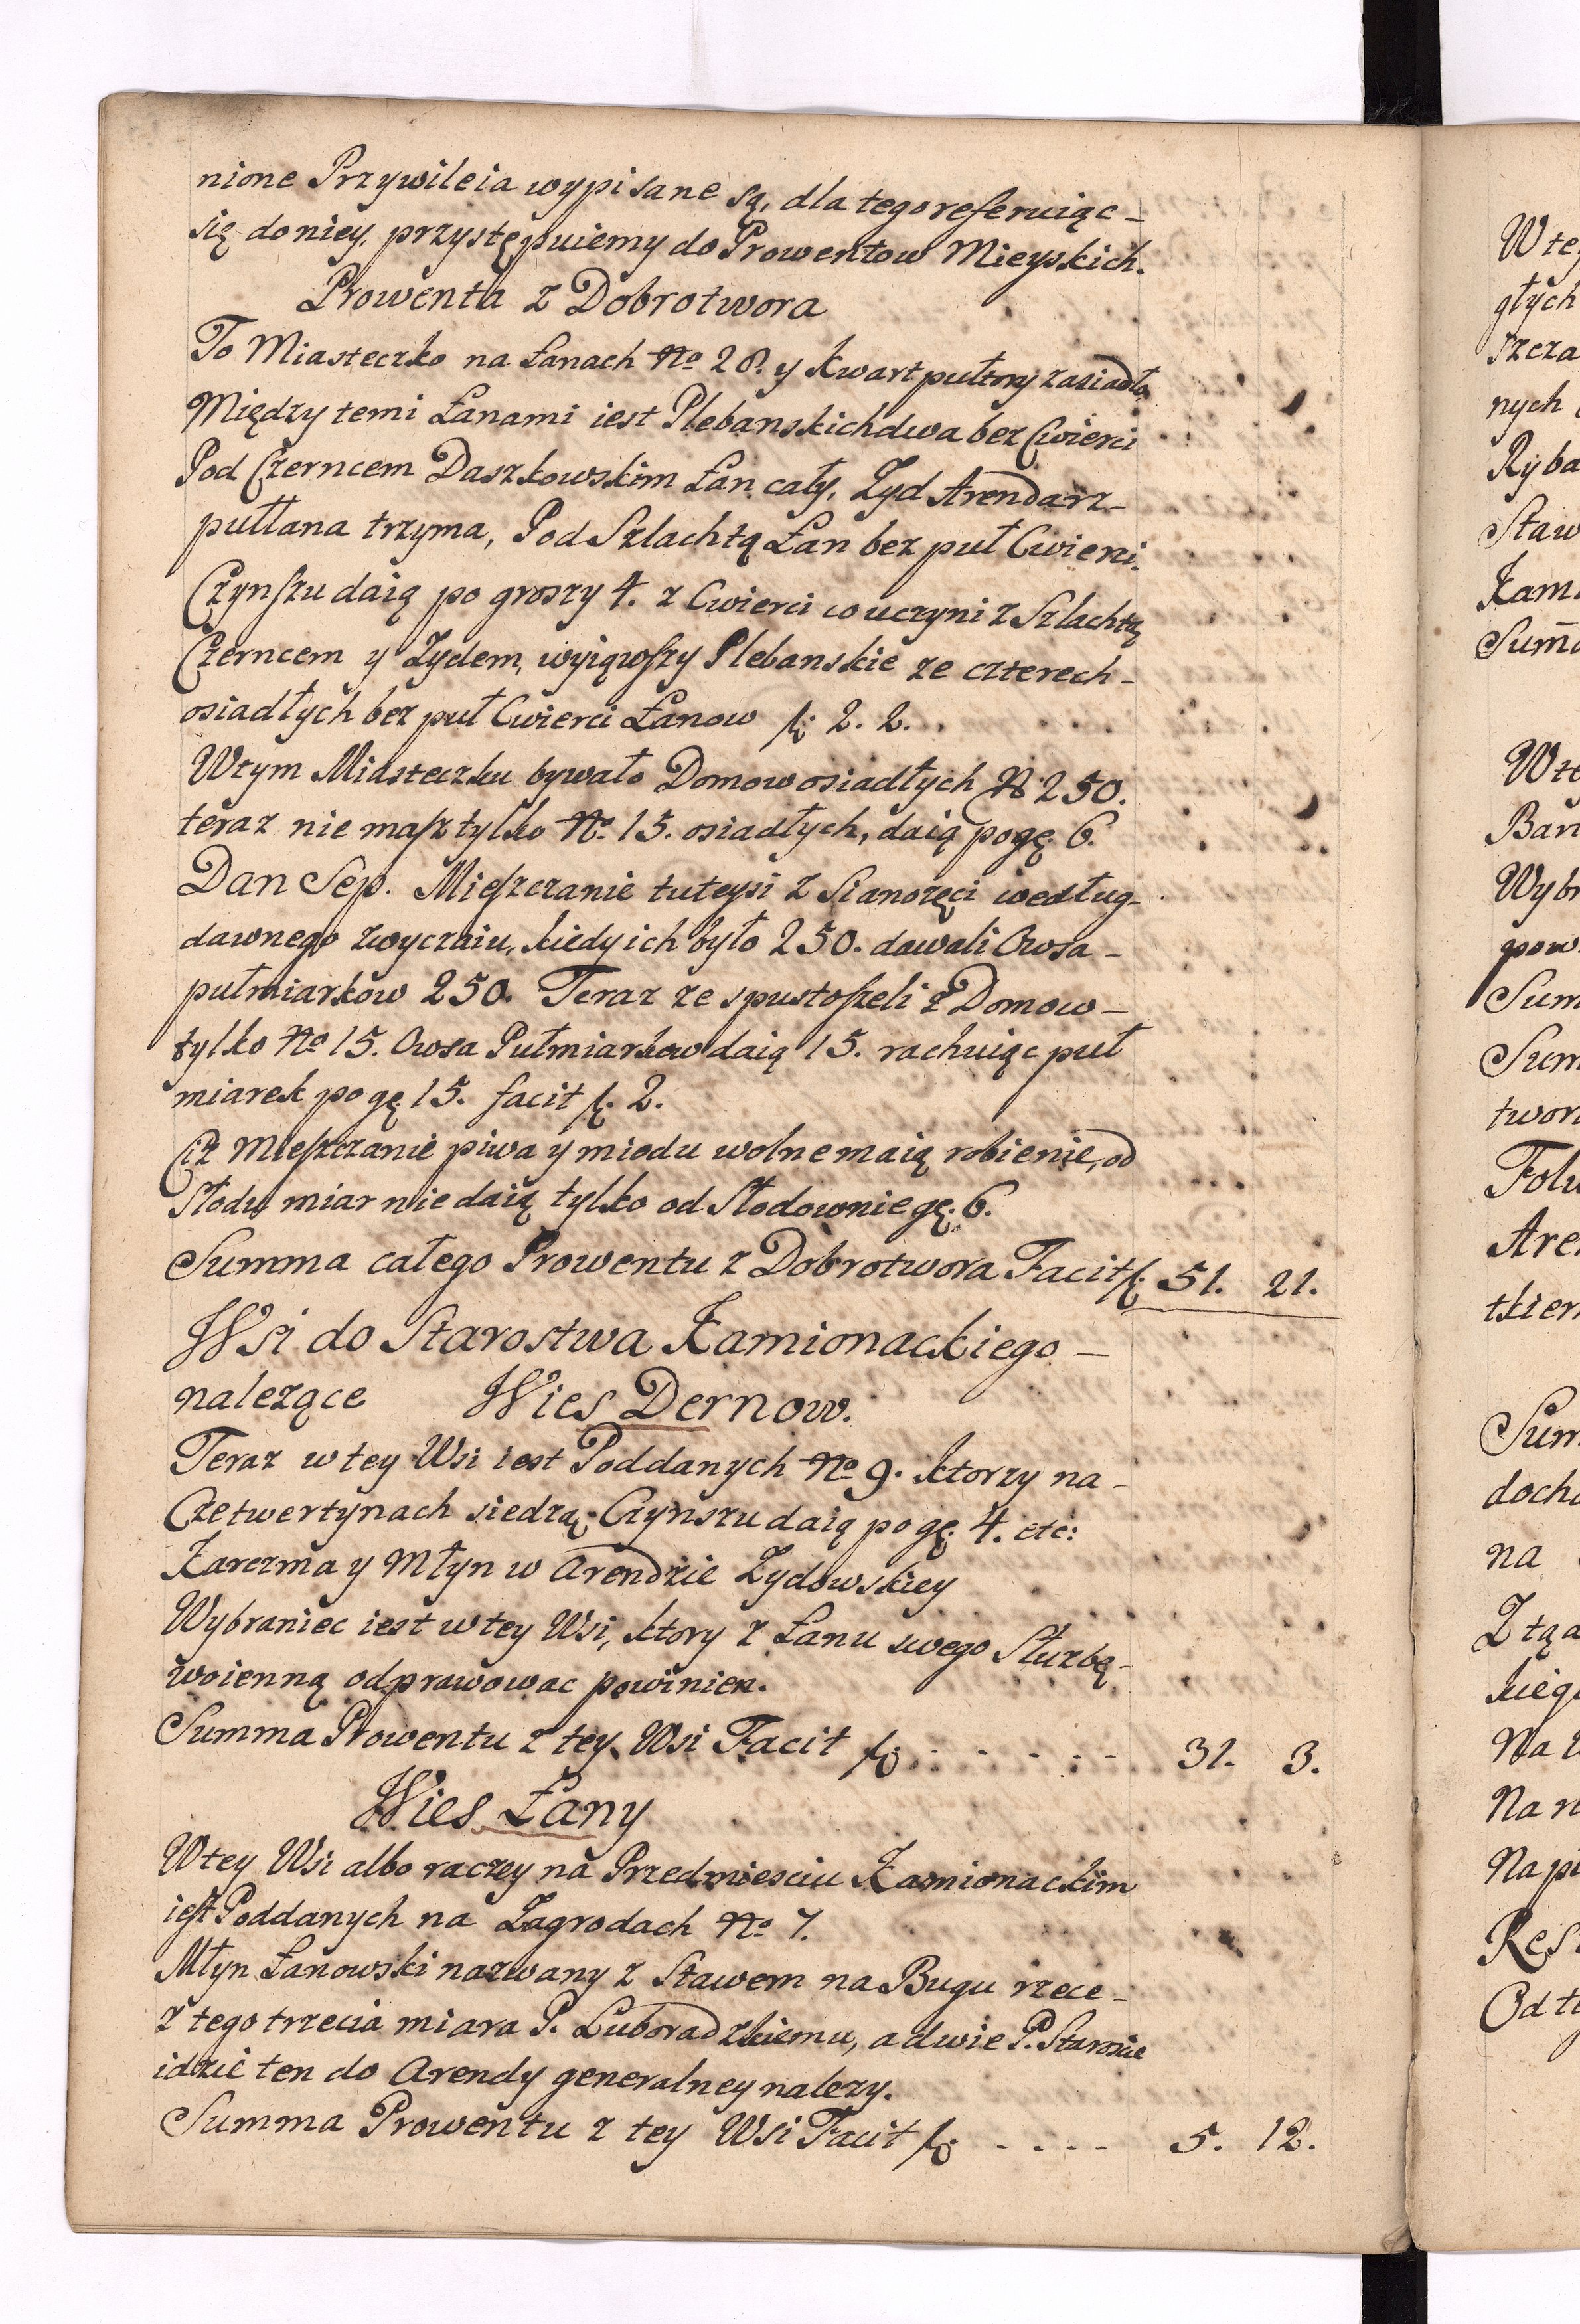 nione Przywileia wypisane są, dla tego referuiąc_
się do niey, przystępuiemy do Prowentow Mieyskich.
Prowenta z Dobrotwora
To Miasteczko na Łanach No 28. y kwart pułtory zasiadło
Między temi Łanami iest Plebanskich dwa bez Cwierci
Pod Czerncem Daszkowskim Łan cały, Zyd Arendarz_
pułłana trzyma, Pod Szlachtą Łan bez puł Cwierci.
Czynszu daią po groszy 4. z Cwierci co uczyni z Szlachtą
Czerncem y Zydem, wyiąwszy Plebanskie ze czterech_
osiadłych bez puł Cwierci Łanow f: 2. 2.
Wtym Miasteczku bywało Domow osiadłych N 250.
teraz nie masz tylko No 15. osiadłych, daią po gę. 6.
Dan Sep. Mieszczanie tuteysi z Sianozęci według_
dawnego zwyczaiu, kiedy ich było 250. dawali Owsa_
pułmiarkow 250. Teraz ze spustoszeli z Domow_
tylko No 15. Owsa Pułmiarkow daią 15. rachuiąc puł
miarek po gę. 15. facit f. 2.
Ciz Mieszczanie piwa y miodu wolne maią robienie, od
Słodu miar nie daią tylko od Słodownie gę. 6.
Summa całego Prowentu z Dobrotwora Facit f. 51. 21.
Wsi do Starostwa Kamionackiego_
nalezące Wies Dernow.
Teraz w tey Wsi iest Poddanych No 9. ktorzy na_
Czetwertynach siedzą. Czynszu daią po gę. 4. etc:
Karczma y Młyn w Arendzie Zydowskiey
Wybraniec iest w tey Wsi, ktory z Łanu swego Słuzbę_
woienną odprawowac powinien.
Summa Prowentu z tey Wsi Facit f: . . . . . . 31. 3.
Wies Łany
Wtey Wsi albo raczey na Przedmiesciu Kamionackim
iest Poddanych na Zagrodach No 7.
Młyn Łanowski nazwany z Stawem na Bugu rzece_
z tego trzecia miara P. Luboradzkiemu, a dwie P. Staroscie
idzie ten do Arendy generalney nalezy.
Summa Prowentu z tey Wsi Facit f: - - - - 5. 12.